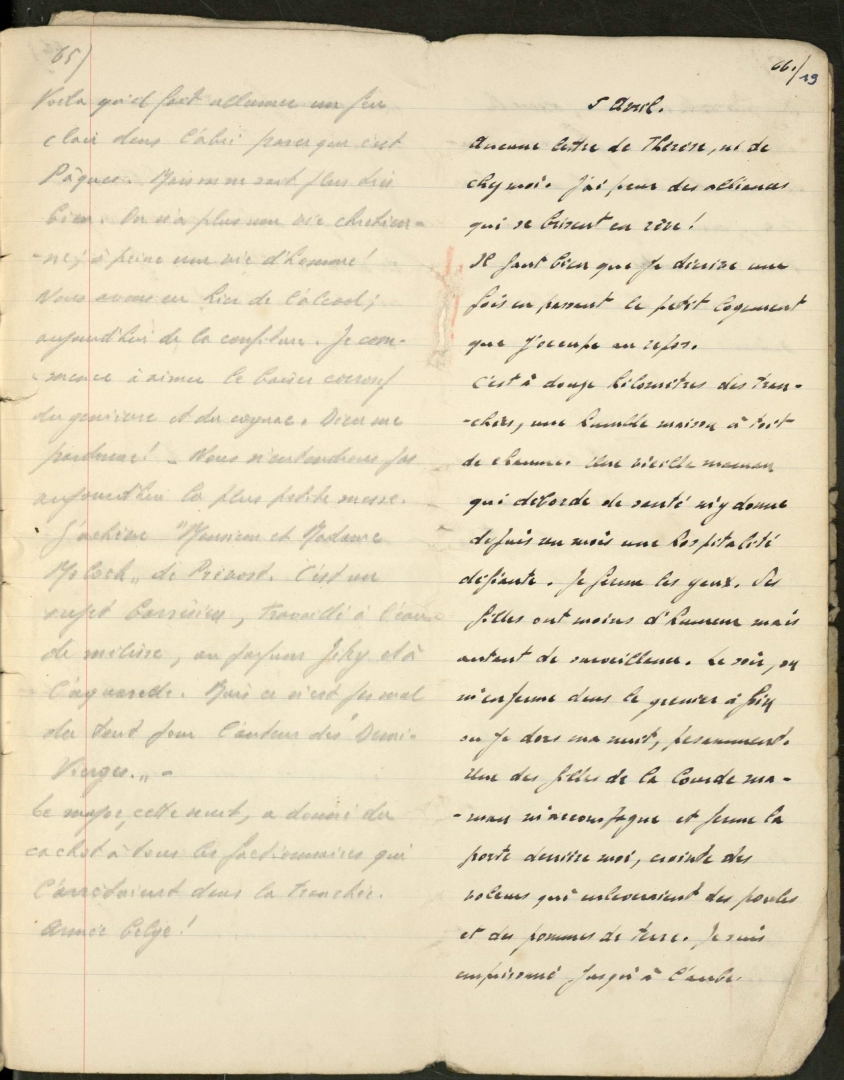 65)
Voila qu'il fait allumer un feu
clair dans l'abri parce que c'est
Pâques. Mais on ne sent plus très
bien. On n'a plus une vie chrétien-
-ne; à peine une vie d'homme!
Nous avons eu hier de l'alcool;
aujourd'hui de la confiture. Je com-
-mence à aimer le baiser corrosif
du genièvre et du cognac. Dieu me
pardonne! _ Nous n'entendrons pas
aujourd'hui la plus petite messe. _
J'achève "Monsieur et Madame
Moloch" de Prévost. C'est un
sujet barrésien, travaillé à l'eau
de mélisse, au parfum Jicky et à
l'aquarelle. Mais ce n'est pas mal
du tout pour l'auteur des "Demi-
Vierges." _
Le major, cette nuit, a donné du
cachot à tous les factionnaires qui
l'arrêtaient dans la tranchée.
Armée belge!
66/
19
5 Avril.
Aucune lettre de Thérèse, ni de
chez moi. J'ai peur des alliances
qui se brisent en rêve!
Il faut bien que je décrive une
fois en passant le petit logement
que j'occupe au repos.
C'est à douze kilomètres des tran-
-chées, une humble maison à toit
de chaume. Une vieille maman
qui déborde de santé m'y donne
depuis un mois une hospitalité
défiante. Je ferme les yeux. Ses
filles ont moins d'humeur mais
autant de surveillance. Le soir, on
m'enferme dans le grenier à foin
où je dors ma nuit, pesamment.
Une des filles de la lourde ma-
-man m'accompagne et ferme la
porte derrière moi, crainte des
voleurs qui enlèveraient des poules
et des pommes de terre. Je suis
emprisonné jusqu'à l'aube.